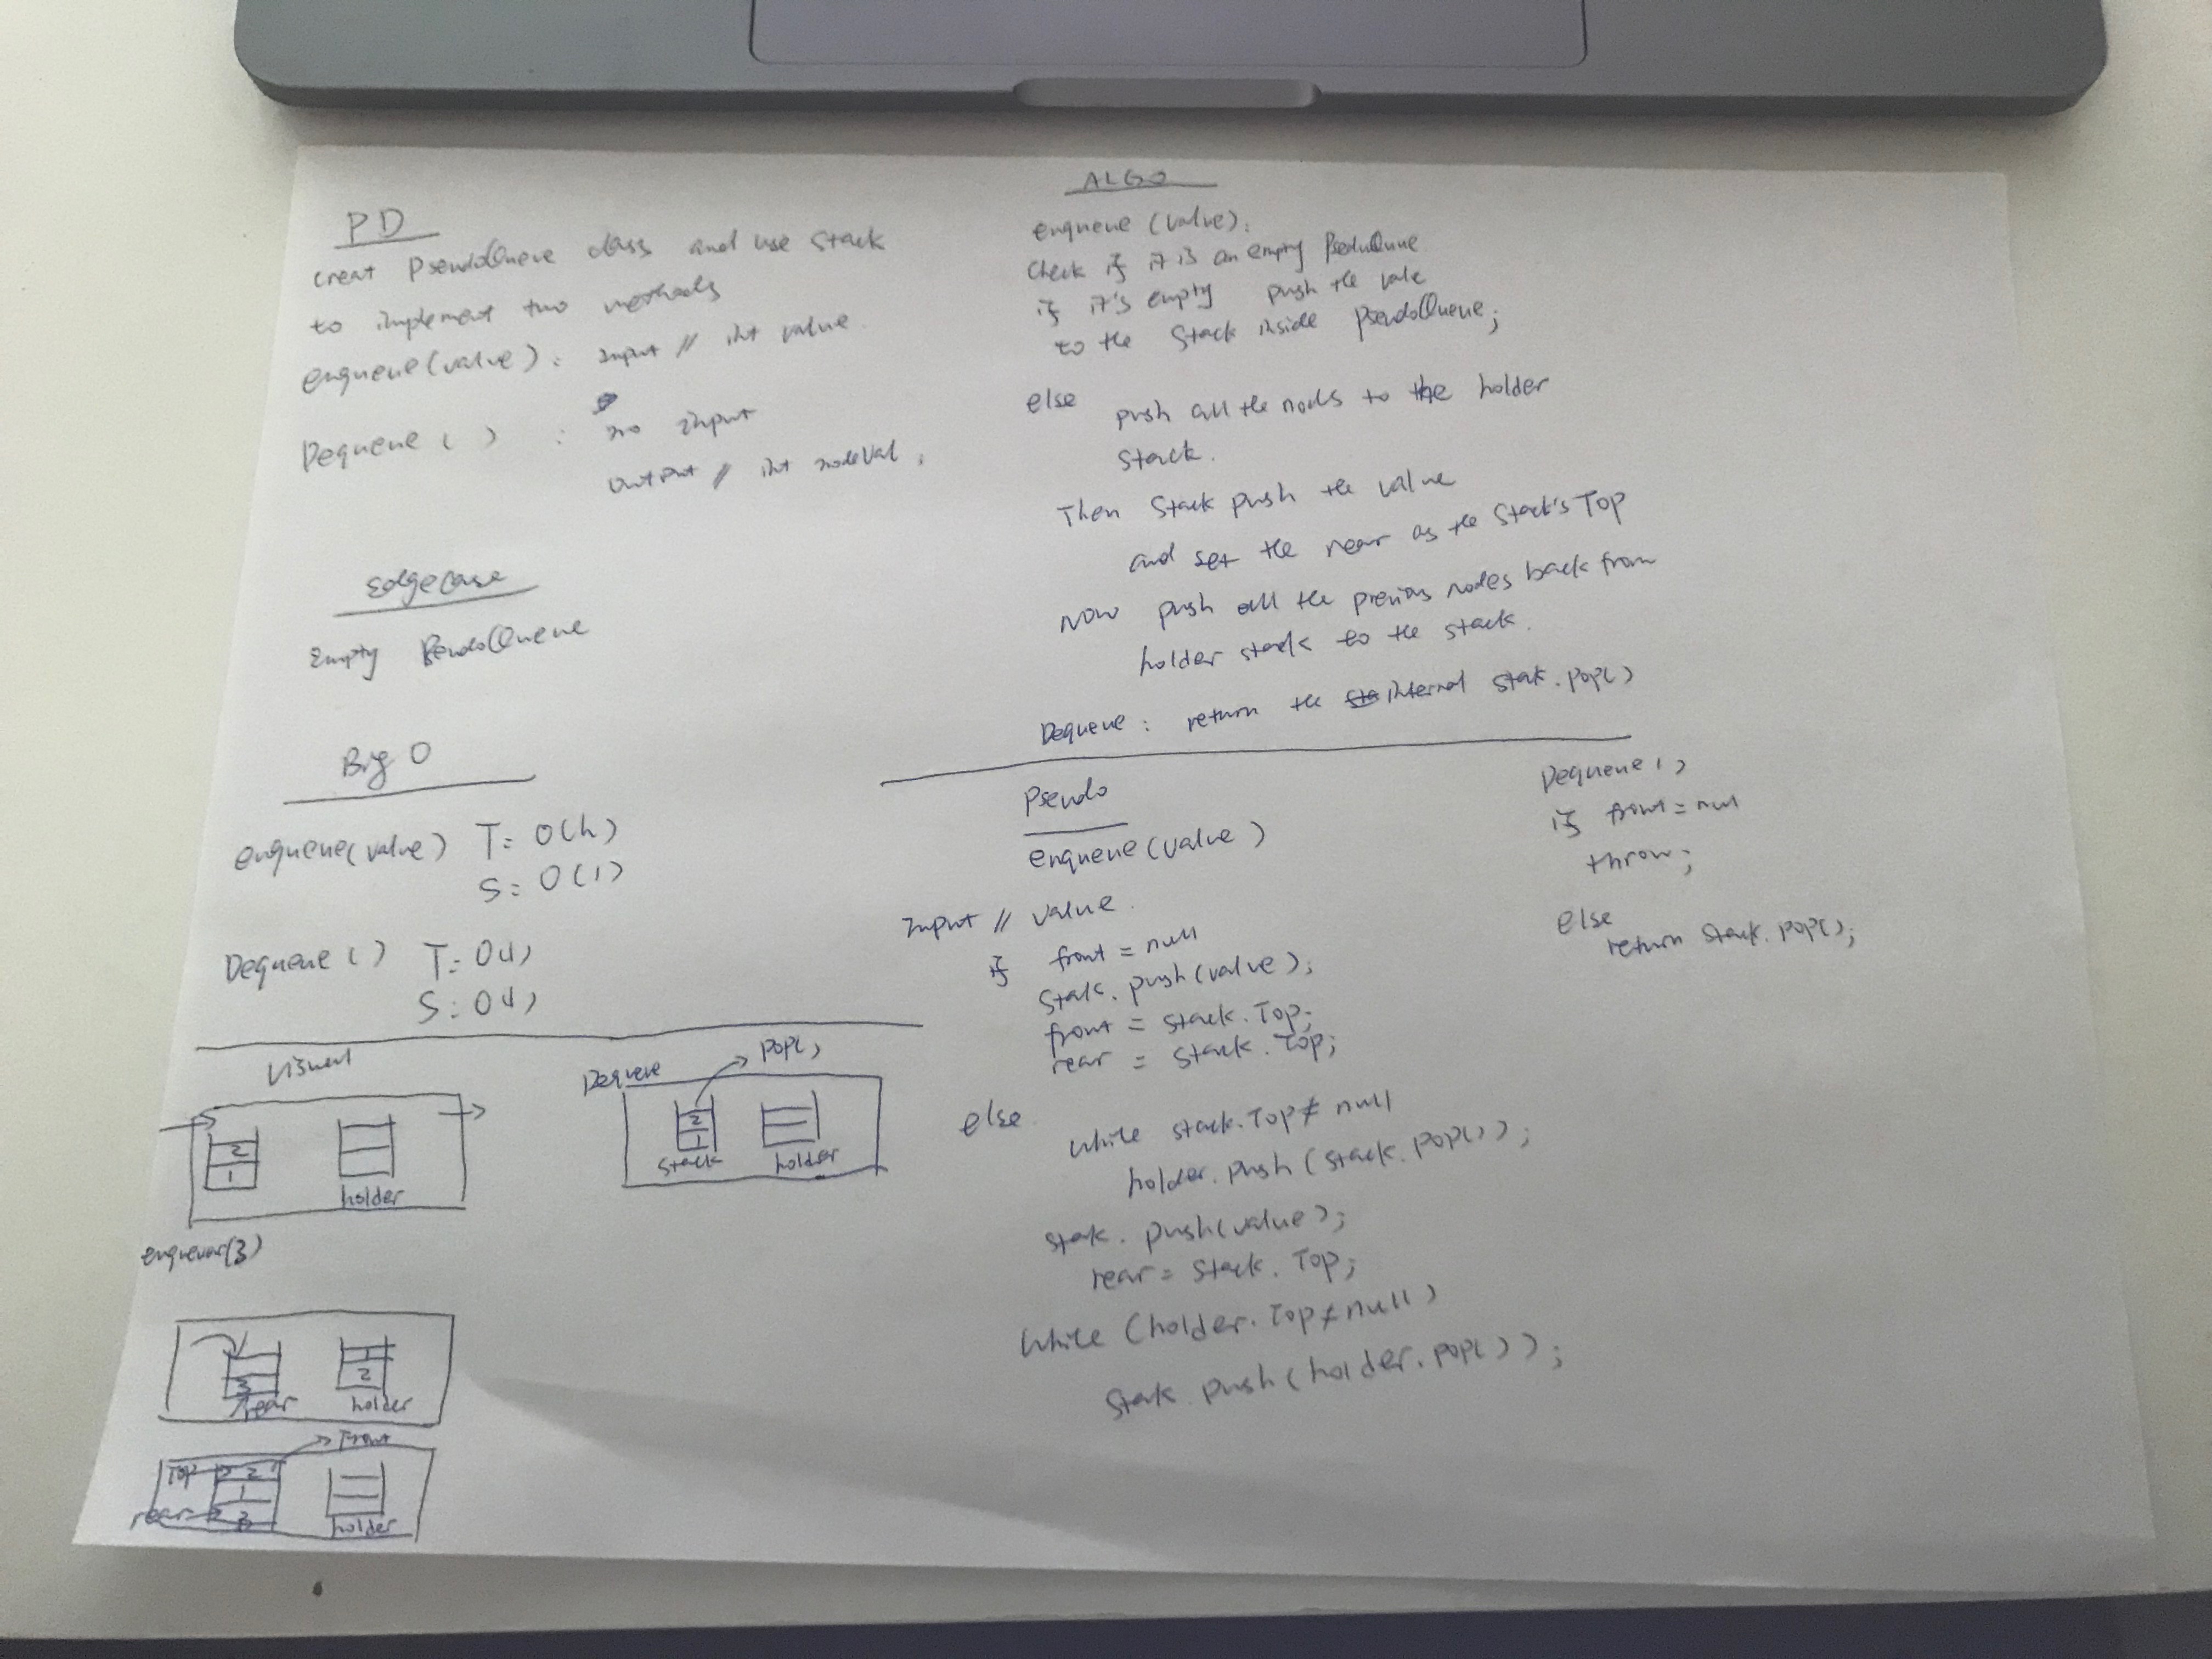 PD
creat pseudoQueue class and use stack
to implement two methods
enqueue(value) : input // int value.
Dequeue ( ) : no input
output // int nodeval ;
Edgecase
Empty PseudoQueue
Big O
enqueue(value) T: O(n)
S: O(1)
Dequeue ( ) T: O(1)
S: O(1)
Visual
2
1
holder
enqueue(3)
3
rear
2
holder
Top
2
1
3
rear
Front
holder
Dequeue
Pop()
2
1
stack
holder
ALGO
enqueue (value) :
check if it is an empty PseudoQueue
if it's empty push the value
to the stack inside pseudoQueue ;
else push all the nods to the holder
stack.
Then stack push the value
and set the rear as the stack's Top
Now push all the previous nodes back from
holder stack to the stack.
Dequeue : return the internal stack.pop()
Pseudo
enqueue(value)
Input // value.
if front = null
stack.push(value);
front = stack.Top;
rear = stack.Top;
else.
while stack.Top ≠ null
holder.push(stack.pop());
stack.push(value);
rear = stack.Top;
while (holder.Top ≠ null)
stack.push(holder.pop());
Dequeue()
if front = null
throw;
else
return stack.pop();